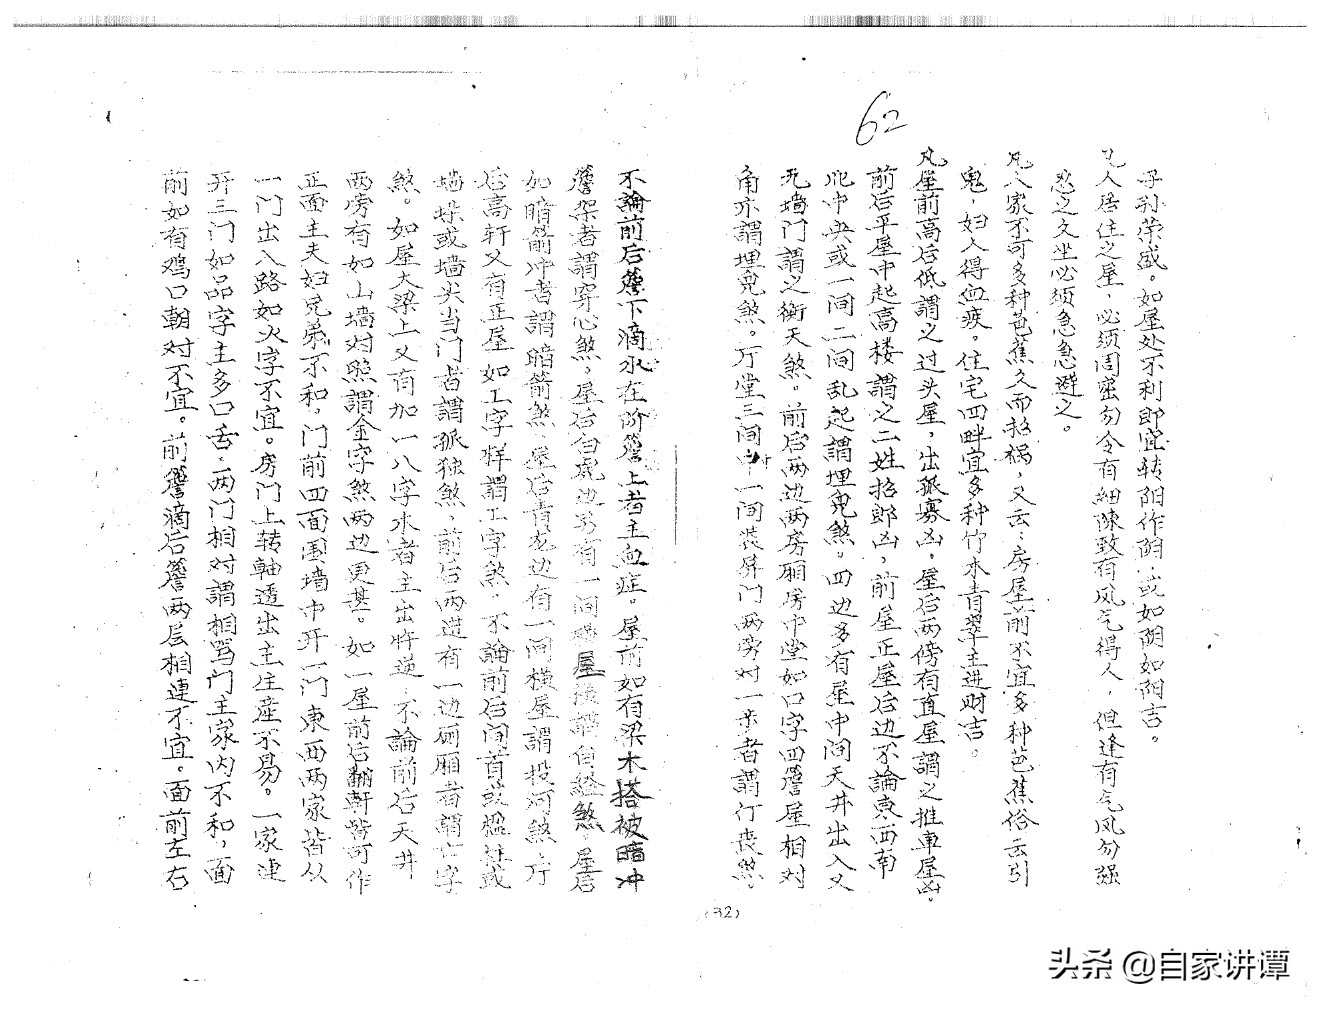 62
子孙荣盛。如屋处不利即宜转阳作阴，或如阴如阳吉。
凡人居住之屋，必须周密勿令有细隙致有风气得人，但逢有气风勿强
忍之久坐必须急急避之。
凡人家不可多种芭蕉久而招祸，又云：房屋前不宜多种芭蕉俗云引
鬼，妇人得血疾。住宅四畔宜多种竹木青翠主进财吉。
凡屋前高后低謂之过头屋，出孤寡凶，屋后两傍有直屋謂之推車屋凶。
前后平屋中起高楼謂之二姓招郎凶，前屋正屋后边不論東西南
北中央或一间二间乱起謂埋兒煞。四边多有屋中间天井出入又
无墙门謂之衡天煞。前后两边两房厢房中堂如口字四簷屋相对
角亦謂埋兒煞。厅堂三间中一间装屏门两旁对一步者謂停喪煞。
不論前后簷下滴水在阶簷上者主血症。屋前如有梁木搭被暗冲
簷架者謂穿心煞，屋后白虎边另有一间横屋後謂自縊煞，屋后
如暗箭冲者謂暗箭煞，屋后青龙边有一间横屋謂投河煞，厅
后高軒又有正屋如工字样謂工字煞，不論前后间首或楹柱或
墙垛或墙尖当门者謂孤独煞，前后两进有一边厕厢者謂亡字
煞。如屋大梁上又有加一八字木者主出忤逆，不論前后天井
两旁有如山墙对照謂金字煞两边更甚。如一屋前后翻軒皆可作
正面主夫妇兄弟不和，门前四面围墙中开一门東西两家皆从
一门出入路如火字不宜。房门上转軸透出主庄産不易。一家連
开三门如品字主多口舌，两门相对謂相骂门主家内不和，面
前如有鸡口朝对不宜。前簷滴后簷两层相連不宜。面前左右
(32)
头条 @自家讲谭